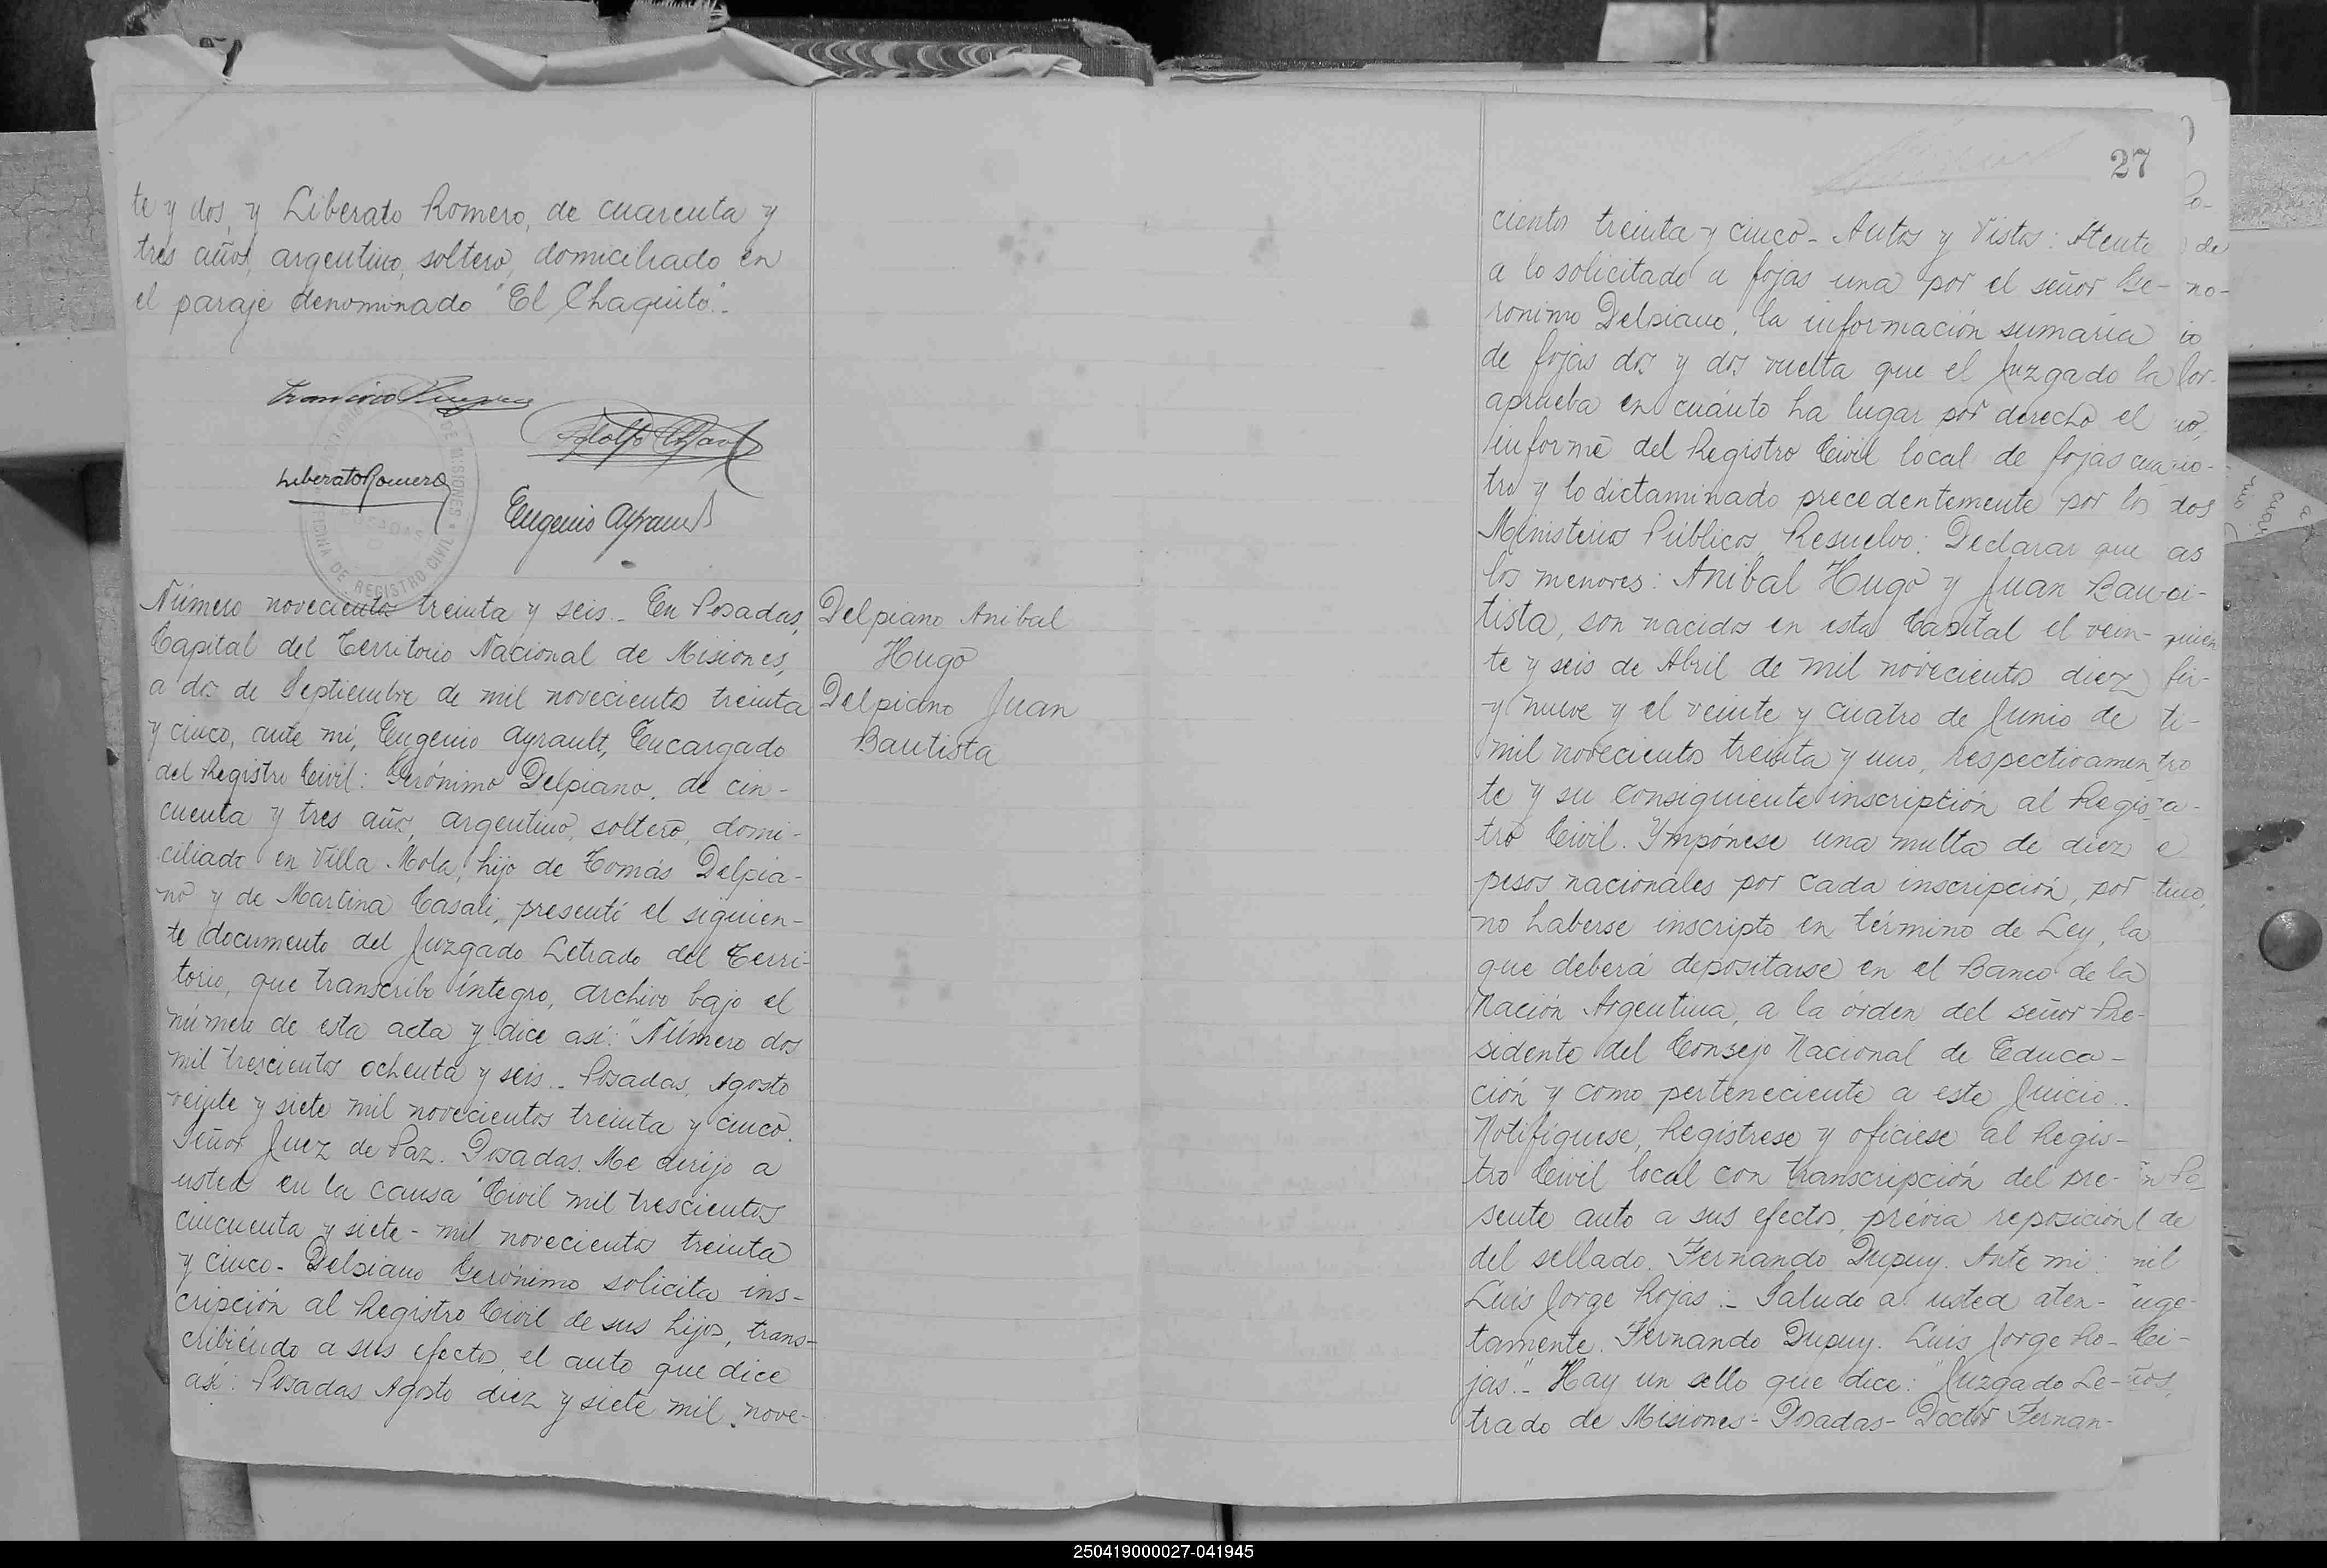 te y dos, y Liberato Romero, de cuarenta y
tres años, argentino, soltero, domiciliado en
el paraje denominado "El Chaquito".-
Francisco
Adolfo
Liberato Romero
Eugenio Ayrault
DE MISIONES
OFICINA DE REGISTRO CIVIL
POSADAS
Número novecientos treinta y seis.- En Posadas,
Capital del Territorio Nacional de Misiones,
a dos de Septiembre de mil novecientos treinta
y cinco, ante mí, Eugenio Ayrault, Encargado
del Registro Civil: Gerónimo Delpiano, de cin-
cuenta y tres años, argentino, soltero, domi-
ciliado en Villa Mola, hijo de Tomás Delpia-
no y de Martina Casali, presentó el siguien-
te documento del Juzgado Letrado del Terri-
torio, que transcribo íntegro, archivo bajo el
número de esta acta y dice así: "Número dos
mil trescientos ochenta y seis.- Posadas, Agosto
veinte y siete mil novecientos treinta y cinco.
Señor Juez de Paz. Posadas. Me dirijo a
usted en la causa Civil mil trescientos
cincuenta y siete - mil novecientos treinta
y cinco - Delpiano Gerónimo solicita ins-
cripción al Registro Civil de sus hijos, trans-
cribiendo a sus efectos, el auto que dice
así: Posadas Agosto diez y siete mil nove-
Delpiano Anibal
Hugo
Delpiano Juan
Bautista
27
cientos treinta y cinco - Autos y Vistos: Atento
a lo solicitado a fojas una por el señor Ge-
ronimo Delpiano, la información sumaria
de fojas dos y dos vuelta que el Juzgado la
aprueba en cuánto ha lugar por derecho el
informe del Registro Civil local de fojas cua-
tro y lo dictaminado precedentemente por los
Ministerios Públicos, Resuelvo: Declarar que
los menores: Anibal Hugo y Juan Bau-
tista, son nacidos en esta Capital el vein-
te y seis de Abril de mil novecientos diez
y nueve y el veinte y cuatro de Junio de
mil novecientos treinta y uno, respectivamen
te y su consiguiente inscripción al Regis-
tro Civil. Ympónese una multa de diez
pesos nacionales por cada inscripción, por
no haberse inscripto en término de Ley, la
que deberá depositarse en el Banco de la
Nación Argentina, a la órden del señor Pre-
sidente del Consejo Nacional de Educa-
ción y como perteneciente a este Juicio..
Notifíquese, Regístrese y ofíciese al Regis-
tro Civil local con transcripción del pre-
sente auto a sus efectos, prévia reposición
del sellado. Fernando Dupuy. Ante mi:
Luis Jorge Rojas:- Saludo a usted aten-
tamente. Fernando Dupuy. Luis Jorge Ro-
jas".- Hay un sello que dice: "Juzgado Le-
trado de Misiones - Posadas - Doctor Fernan-
250419000027-041945